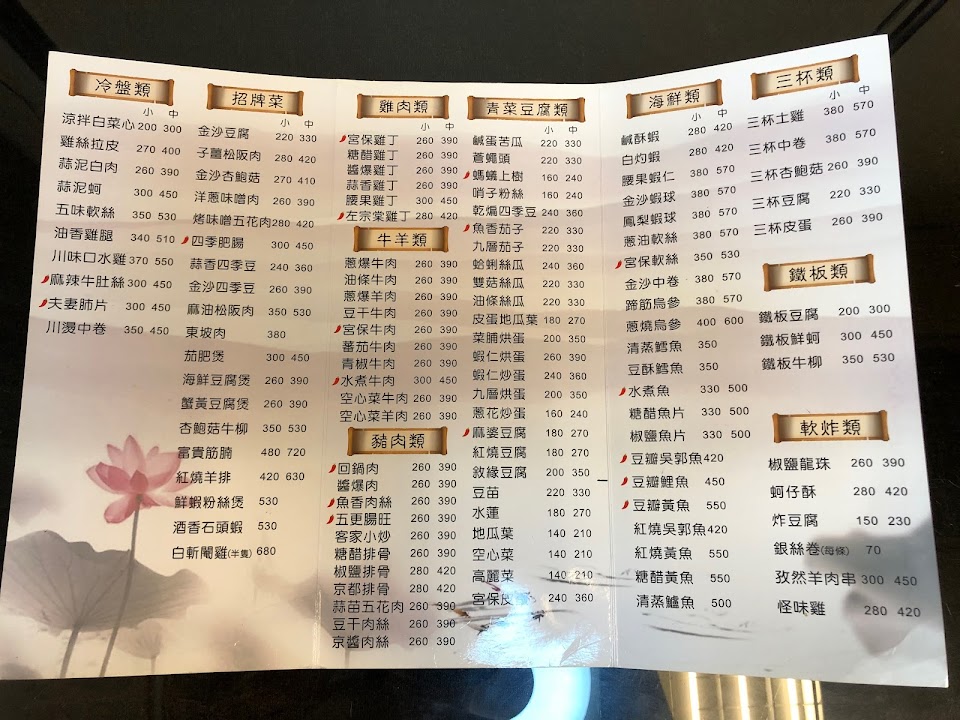 冷盤類
小 中
涼拌白菜心 200 300
雞絲拉皮 270 400
蒜泥白肉 260 390
蒜泥蚵 300 450
五味軟絲 350 530
油香雞腿 340 510
川味口水雞 370 550
麻辣牛肚絲 300 450
夫妻肺片 300 450
川燙中卷 350 450
招牌菜
小 中
金沙豆腐 220 330
子薑松阪肉 280 420
金沙杏鮑菇 270 410
洋蔥味噌肉 260 390
烤味噌五花肉 280 420
四季肥腸 300 450
蒜香四季豆 240 360
金沙四季豆 260 390
麻油松阪肉 350 530
東坡肉 380
茄肥煲 300 450
海鮮豆腐煲 260 390
蟹黃豆腐煲 260 390
杏鮑菇牛柳 350 530
富貴筋腩 480 720
紅燒羊排 420 630
鮮蝦粉絲煲 530
酒香石頭蝦 530
白斬閹雞(半隻) 680
雞肉類
小 中
宮保雞丁 260 390
糖醋雞丁 260 390
醬爆雞丁 260 390
蒜香雞丁 260 390
腰果雞丁 300 450
左宗棠雞丁 280 420
牛羊類
蔥爆牛肉 260 390
油條牛肉 260 390
蔥爆羊肉 260 390
豆干牛肉 260 390
宮保牛肉 260 390
蕃茄牛肉 260 390
青椒牛肉 260 390
水煮牛肉 300 450
空心菜牛肉 260 390
空心菜羊肉 260 390
豬肉類
回鍋肉 260 390
醬爆肉 260 390
魚香肉絲 260 390
五更腸旺 260 390
客家小炒 260 390
糖醋排骨 260 390
椒鹽排骨 280 420
京都排骨 280 420
蒜苗五花肉 260 390
豆干肉絲 260 390
京醬肉絲 260 390
青菜豆腐類
小 中
鹹蛋苦瓜 220 330
蒼蠅頭 220 330
螞蟻上樹 160 240
哨子粉絲 160 240
乾煸四季豆 240 360
魚香茄子 220 330
九層茄子 220 330
蛤蜊絲瓜 240 360
雙菇絲瓜 220 330
油條絲瓜 220 330
皮蛋地瓜葉 180 270
菜脯烘蛋 200 350
蝦仁烘蛋 260 390
蝦仁炒蛋 240 360
九層烘蛋 200 350
蔥花炒蛋 160 240
麻婆豆腐 180 270
紅燒豆腐 180 270
敘緣豆腐 200 350
豆苗 220 330
水蓮 180 270
地瓜葉 140 210
空心菜 140 210
高麗菜 140 210
宮保皮 240 360
海鮮類
小 中
鹹酥蝦 280 420
白灼蝦 280 420
腰果蝦仁 380 570
金沙蝦球 380 570
鳳梨蝦球 380 570
蔥油軟絲 380 570
宮保軟絲 350 530
金沙中卷 380 570
蹄筋烏參 380 570
蔥燒烏參 400 600
清蒸鱈魚 350
豆酥鱈魚 350
水煮魚 330 500
糖醋魚片 330 500
椒鹽魚片 330 500
豆瓣吳郭魚 420
豆瓣鯉魚 450
豆瓣黃魚 550
紅燒吳郭魚 420
紅燒黃魚 550
糖醋黃魚 550
清蒸鱸魚 500
三杯類
小 中
三杯土雞 380 570
三杯中卷 380 570
三杯杏鮑菇 260 390
三杯豆腐 220 330
三杯皮蛋 260 390
鐵板類
鐵板豆腐 200 300
鐵板鮮蚵 300 450
鐵板牛柳 350 530
軟炸類
椒鹽龍珠 260 390
蚵仔酥 280 420
炸豆腐 150 230
銀絲卷(每條) 70
孜然羊肉串 300 450
怪味雞 280 420